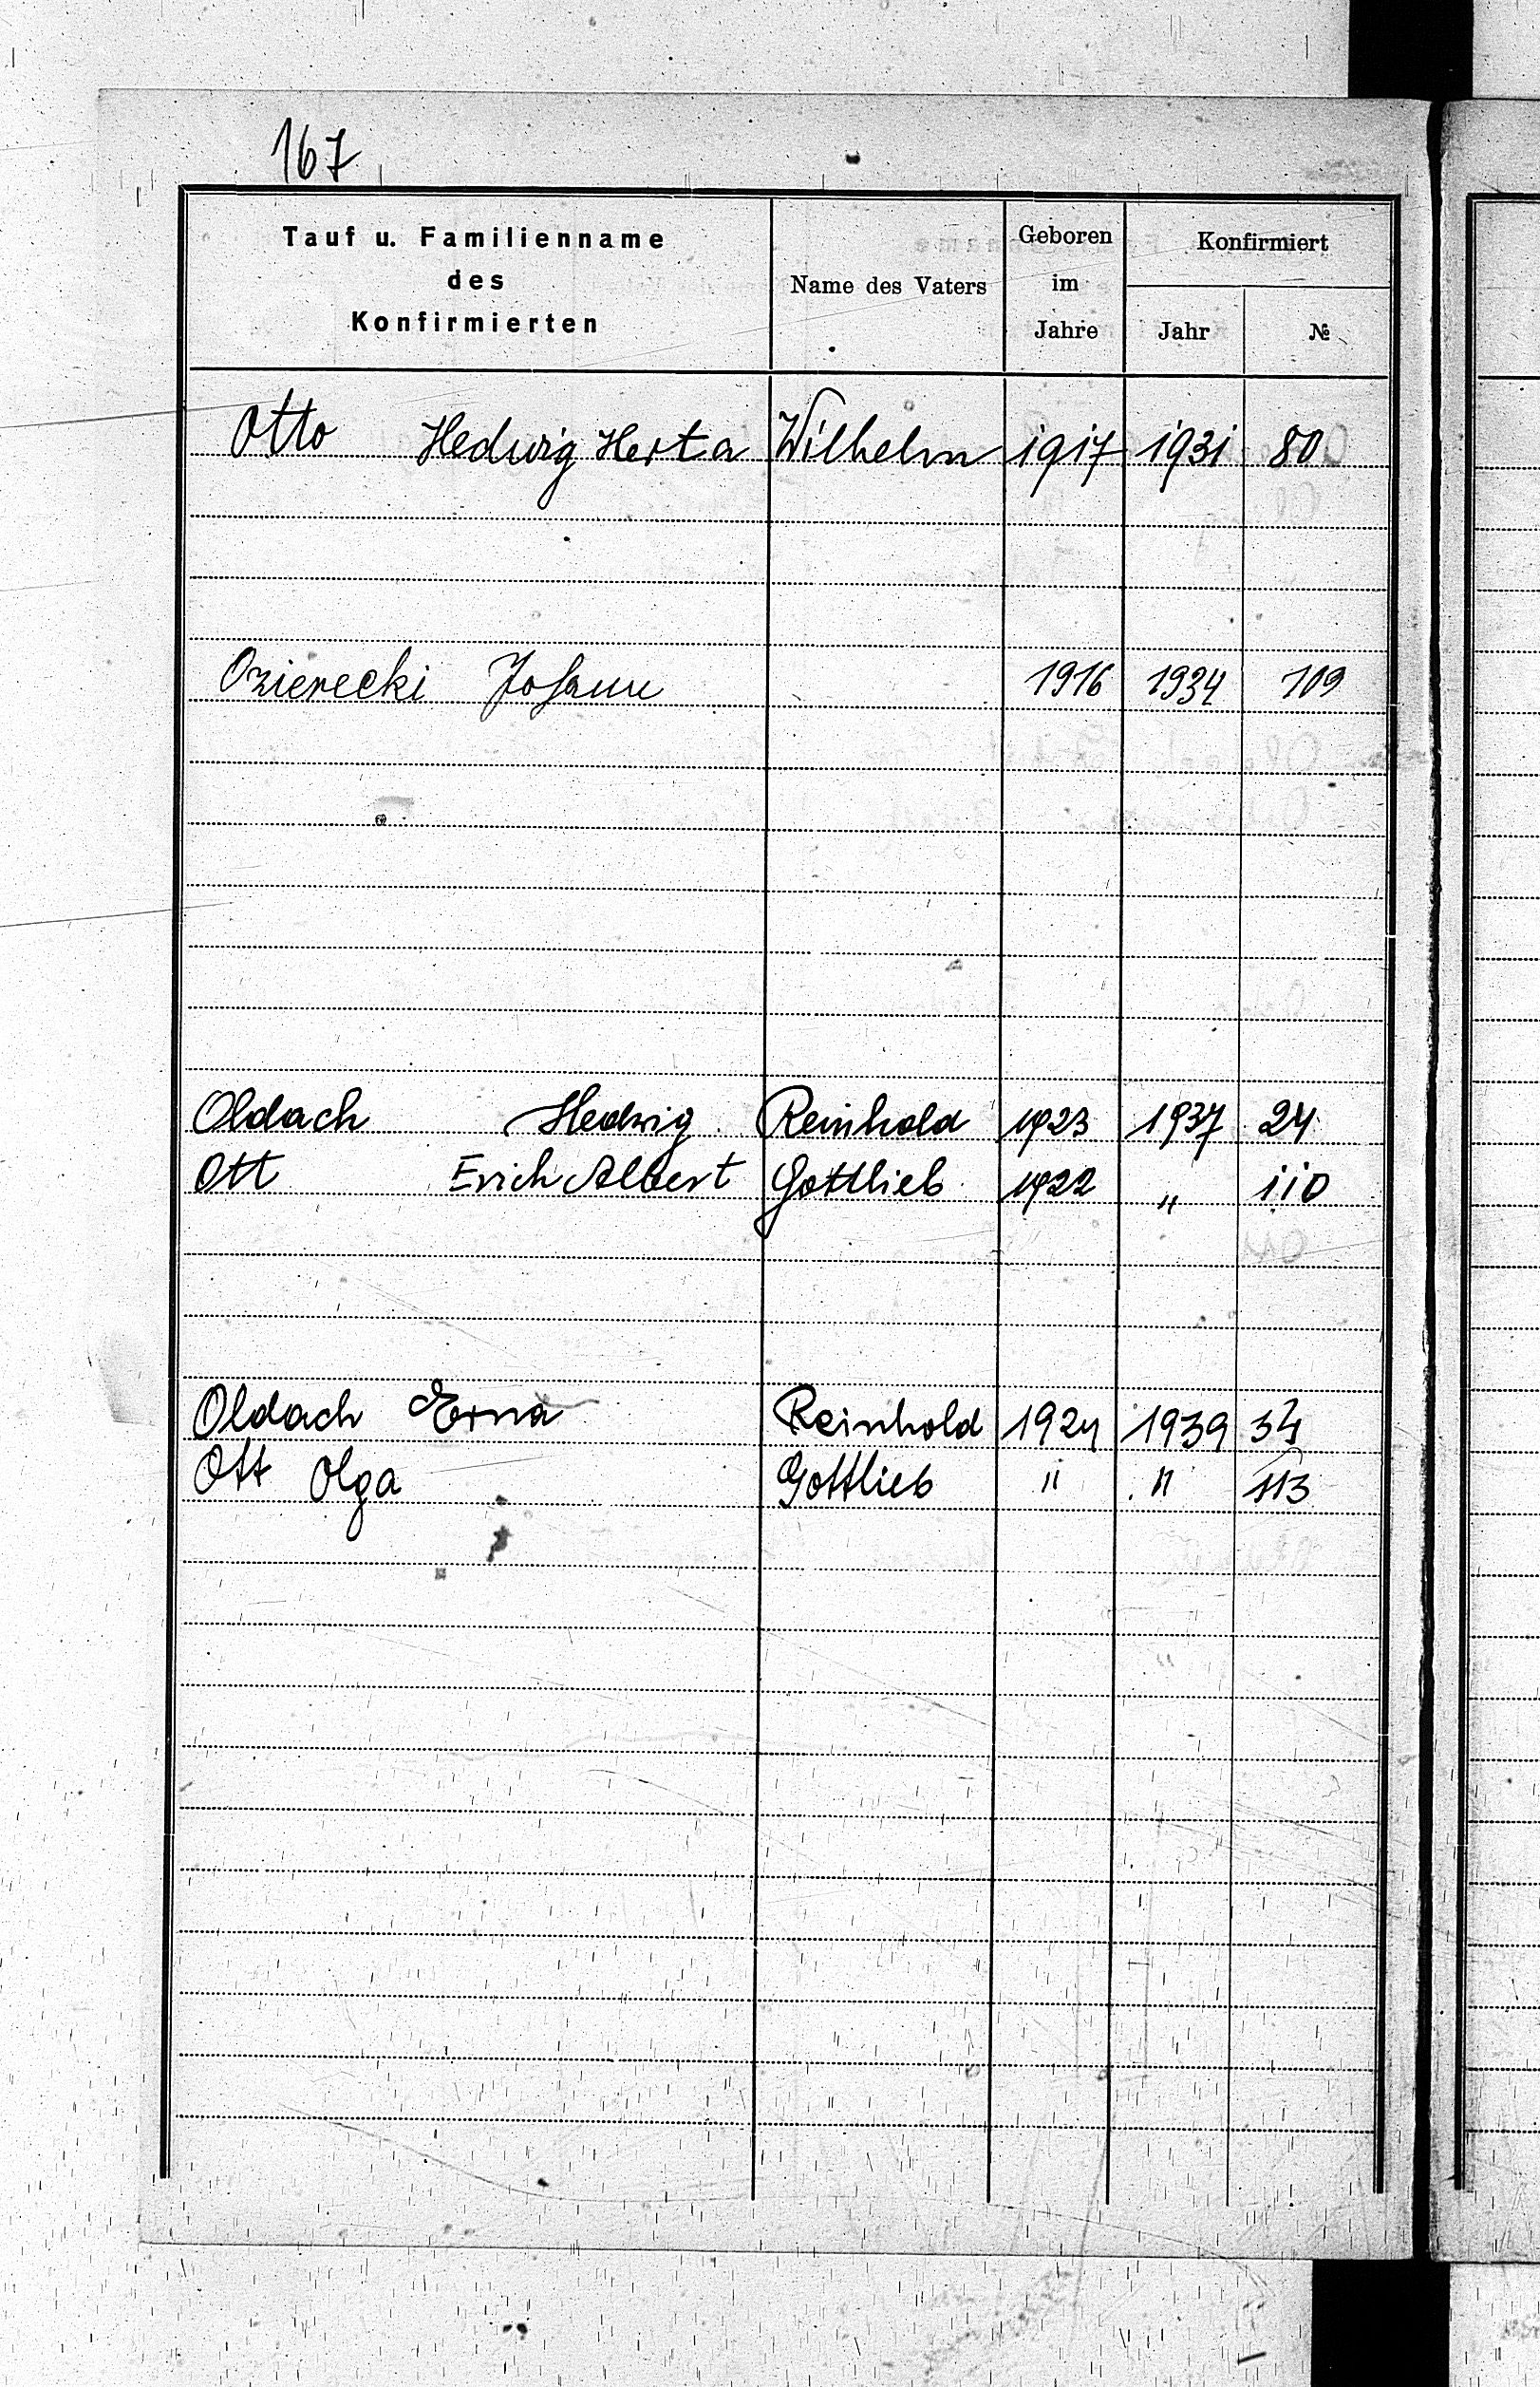 167
Tauf u. Familienname des Konfirmierten | Name des Vaters | Geboren im Jahre | Konfirmiert Jahr | №
Otto Hedwig Herta Wilhelm 1917 1931 80
Ozierecki Johann 1916 1934 109
Oldach Hedwig Reinhold 1923 1937 24
Ott Erich Albert Gottlieb 1922 " 110
Oldach Erna Reinhold 1924 1939 34
Ott Olga Gottlieb " " 113